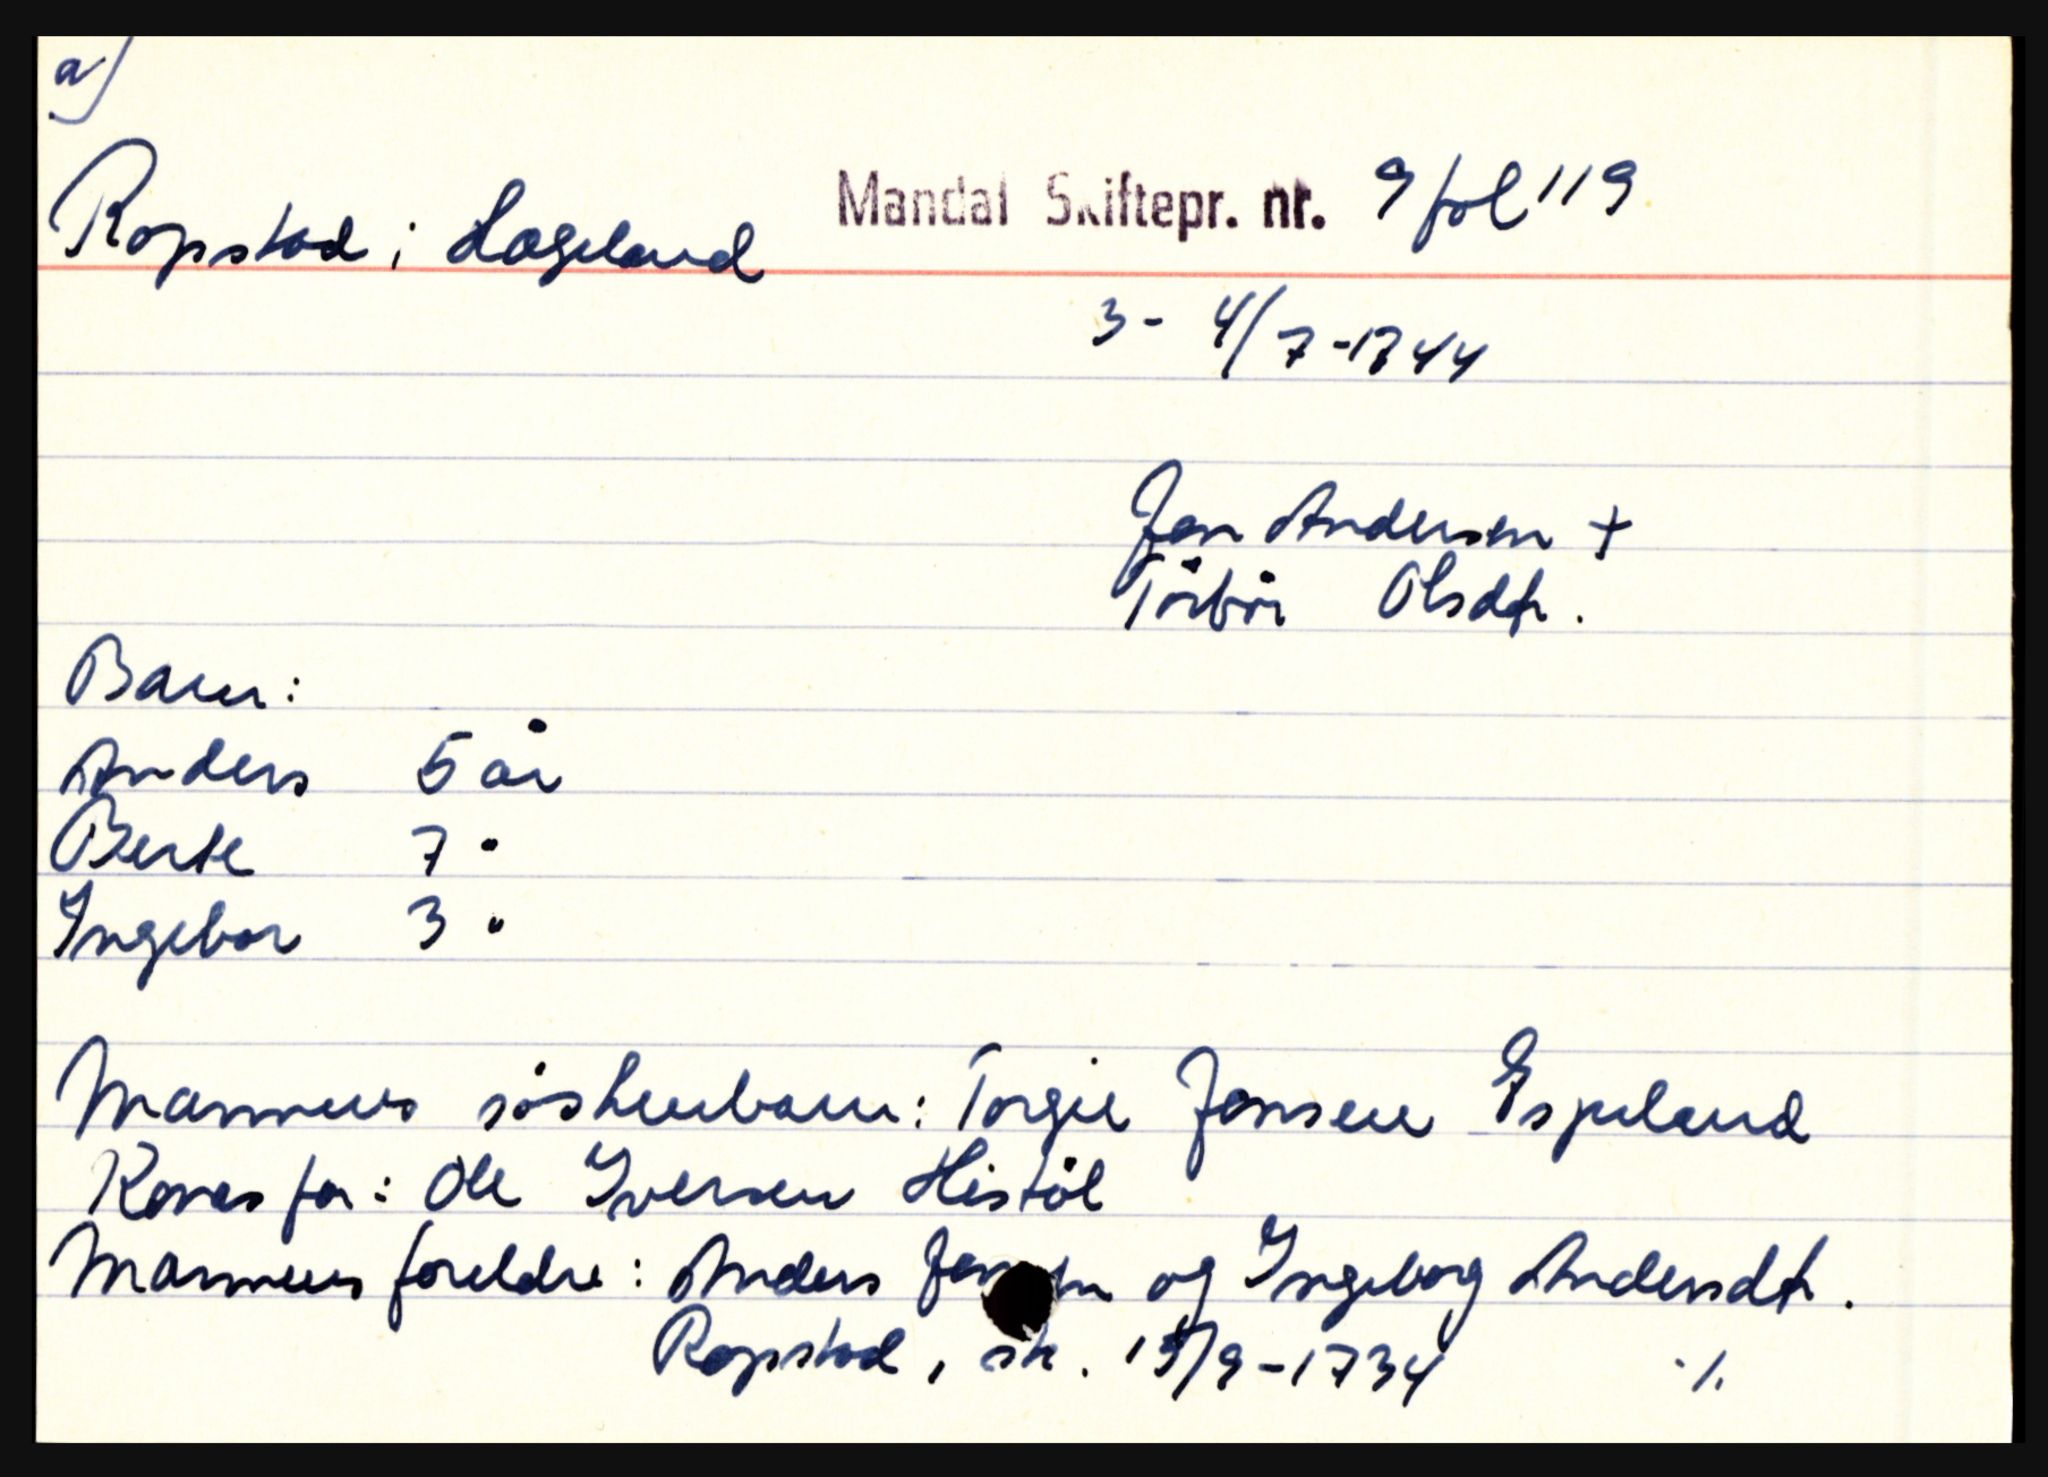 a)
Ropstad i Lageland Mandal Skiftepr. nr. 9 fol 119
3 - 4/7-1744
Jon Andersen +
Törbör Olsdtr.
Barn:
Anders 5 år
Berte 7 "
Ingebor 3 "
Mannens söskenbarn: Torgie Jonsen Espeland
Kones far: Ole Iversen Histöl
Mannens foreldre: Anders Jonsen og Ingeborg Andersdtr.
Ropstad, sk. 15/9-1734 ./.